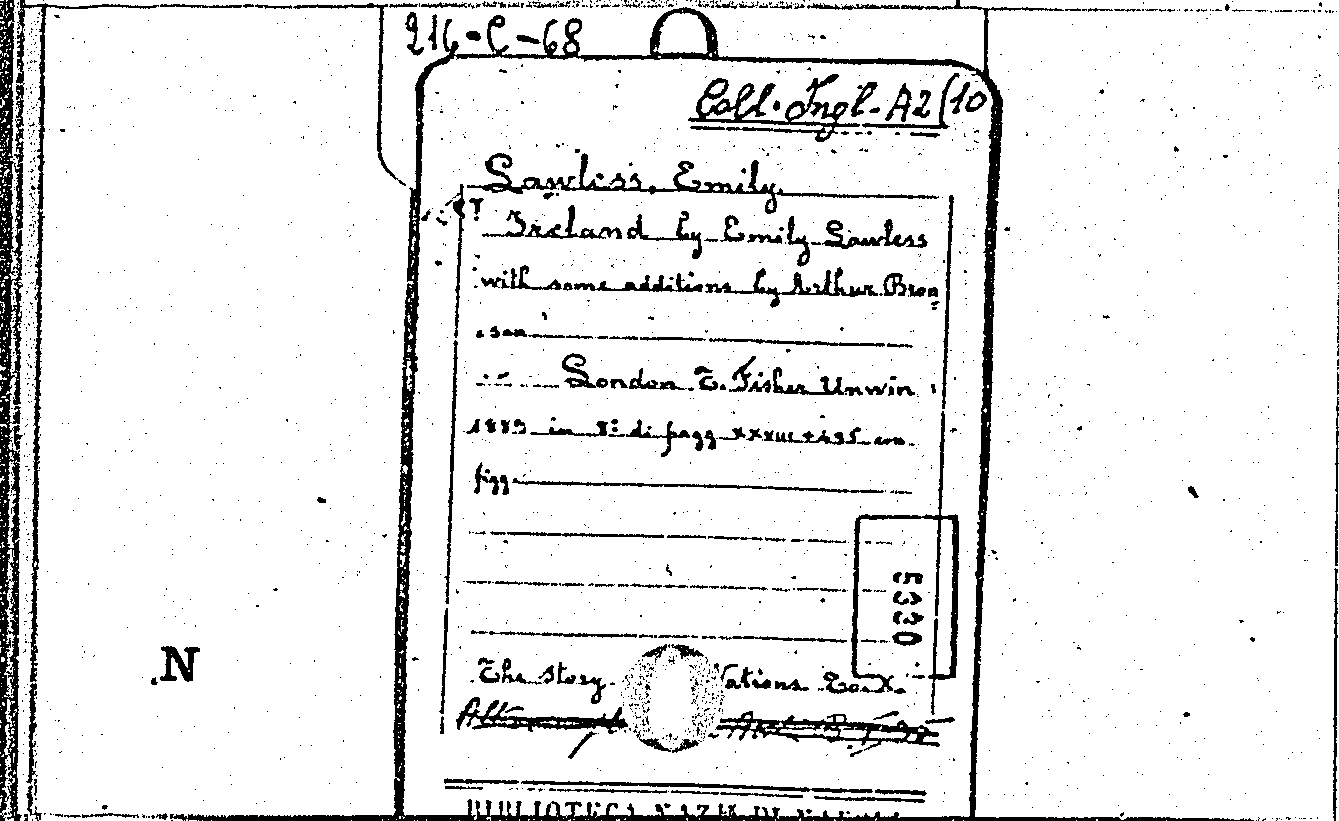 216-C-68
Coll. Ingl. A2(10
Lawless, Emily.
Ireland by Emily Lawless
with some additions by Arthur Bron=
son
London T. Fisher Unwin
1889 in 8° di pagg con
figg.
5330
The Story Nations To. X.
N
BIBLIOTECA NAZ